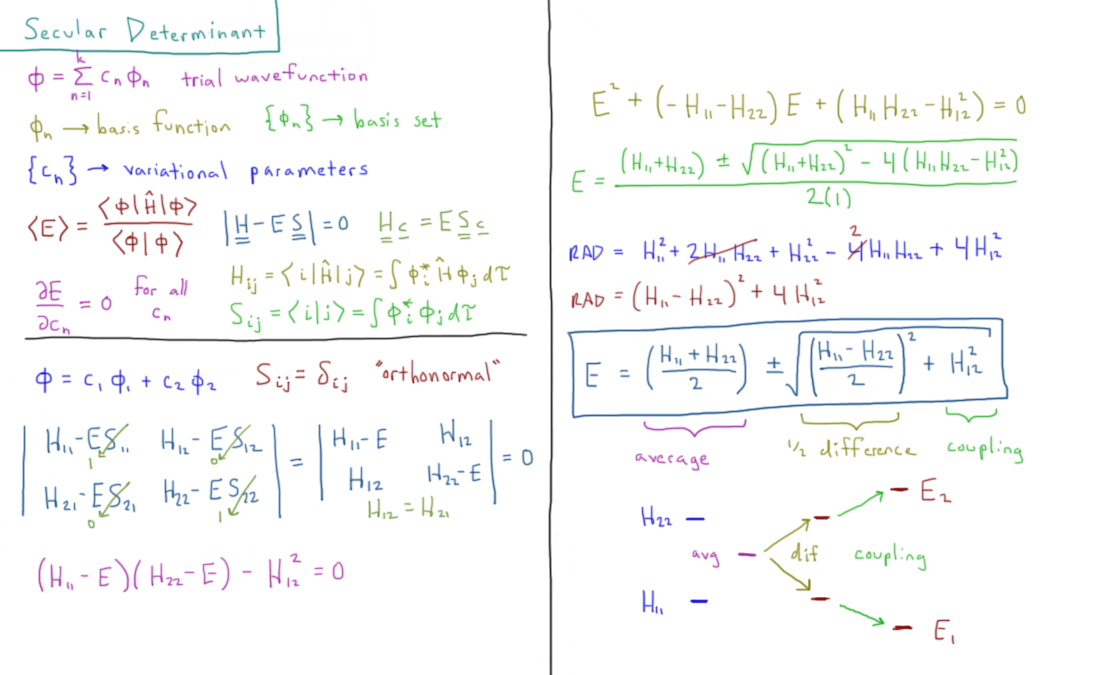 Secular Determinant
ϕ = Σ_{n=1}^{k} c_n ϕ_n trial wavefunction
ϕ_n → basis function {ϕ_n} → basis set
{c_n} → variational parameters
⟨E⟩ = ⟨ϕ|Ĥ|ϕ⟩ / ⟨ϕ|ϕ⟩ |H - E S| = 0 H c = E S c
∂E/∂c_n = 0 for all c_n
H_ij = ⟨i|Ĥ|j⟩ = ∫ ϕ_i* Ĥ ϕ_j dτ
S_ij = ⟨i|j⟩ = ∫ ϕ_i* ϕ_j dτ
ϕ = c_1 ϕ_1 + c_2 ϕ_2 S_ij = δ_ij "orthonormal"
| H_11 - E S_11 H_12 - E S_12 | = | H_11 - E H_12 | = 0
1 0
| H_21 - E S_21 H_22 - E S_22 | | H_12 H_22 - E |
0 1 H_12 = H_21
(H_11 - E)(H_22 - E) - H_12² = 0
E² + (-H_11 - H_22) E + (H_11 H_22 - H_12²) = 0
E = (H_11 + H_22) ± √((H_11 + H_22)² - 4(H_11 H_22 - H_12²)) / 2(1)
RAD = H_11² + 2H_11 H_22 + H_22² - 4 2 H_11 H_22 + 4H_12²
RAD = (H_11 - H_22)² + 4 H_12²
E = ((H_11 + H_22)/2) ± √(((H_11 - H_22)/2)² + H_12²)
average ½ difference coupling
E_2
H_22
avg dif coupling
H_11
E_1